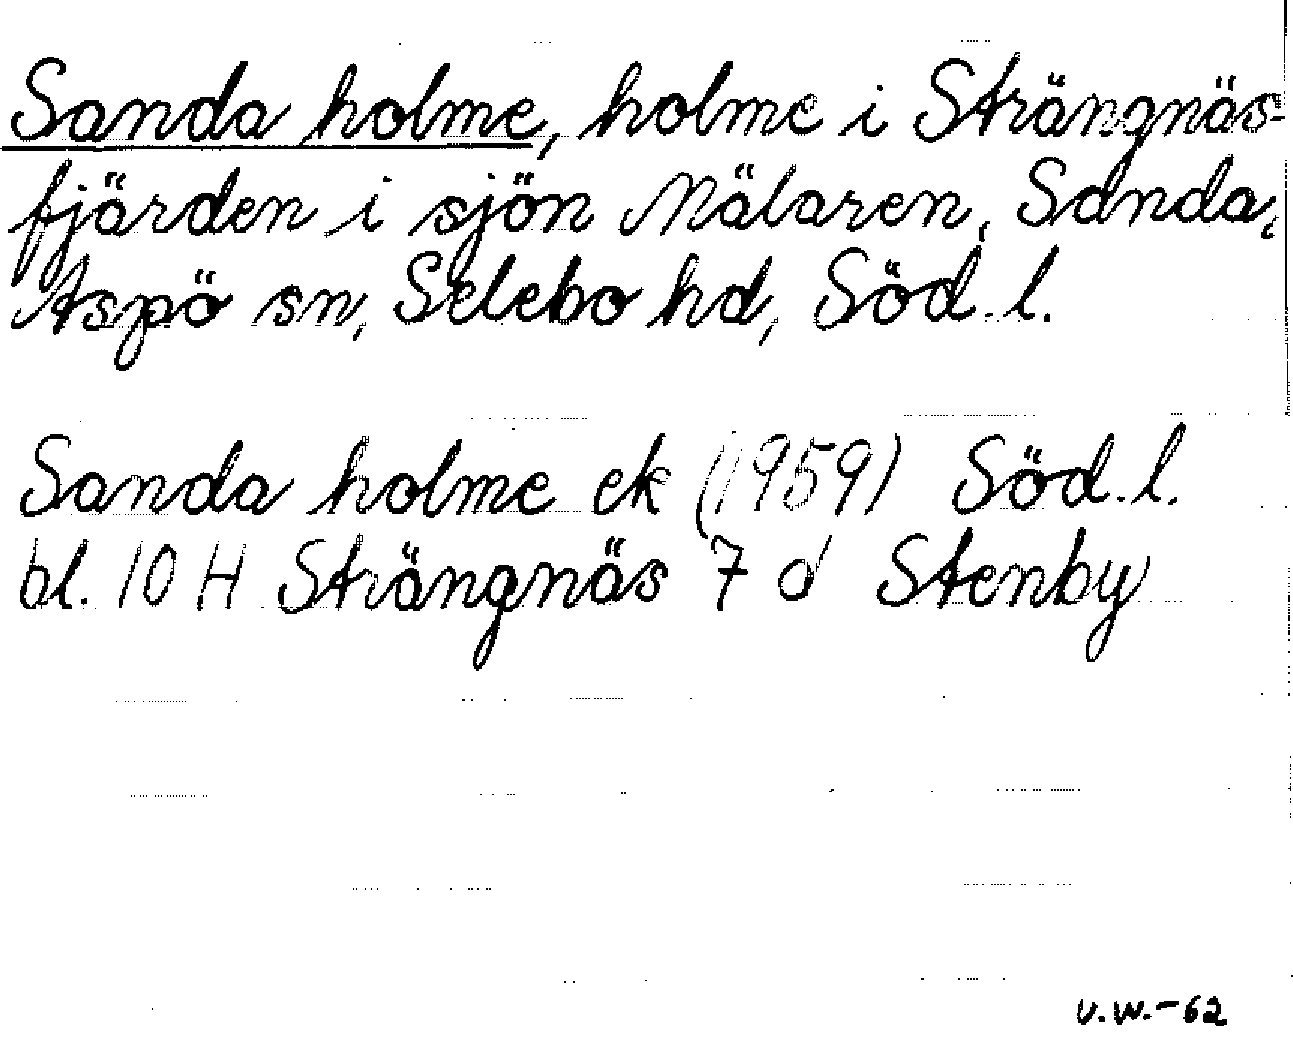 Sanda holme, holme i Strängnäs-
fjärden i sjön Mälaren, Sanda,
Aspö sn, Selebo hd, Söd. l.
Sanda holme ek (1959) Söd. l.
bl. 10 H Strängnäs 7 d Stenby
U.W.-62